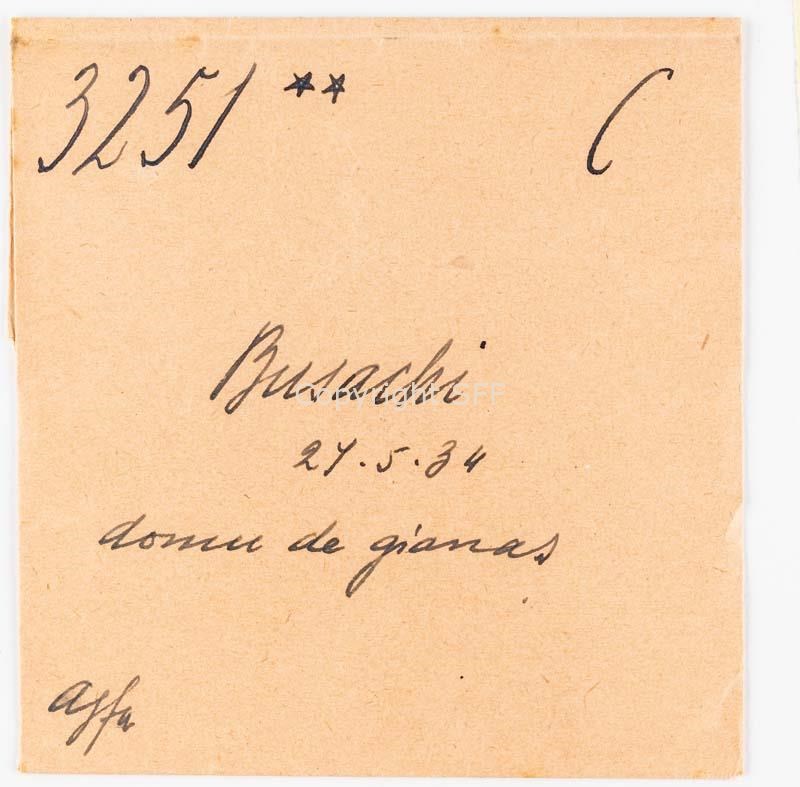 3251 ** C
Busachi
Copyright SFF
27.5.34
domu de gianas
agfa